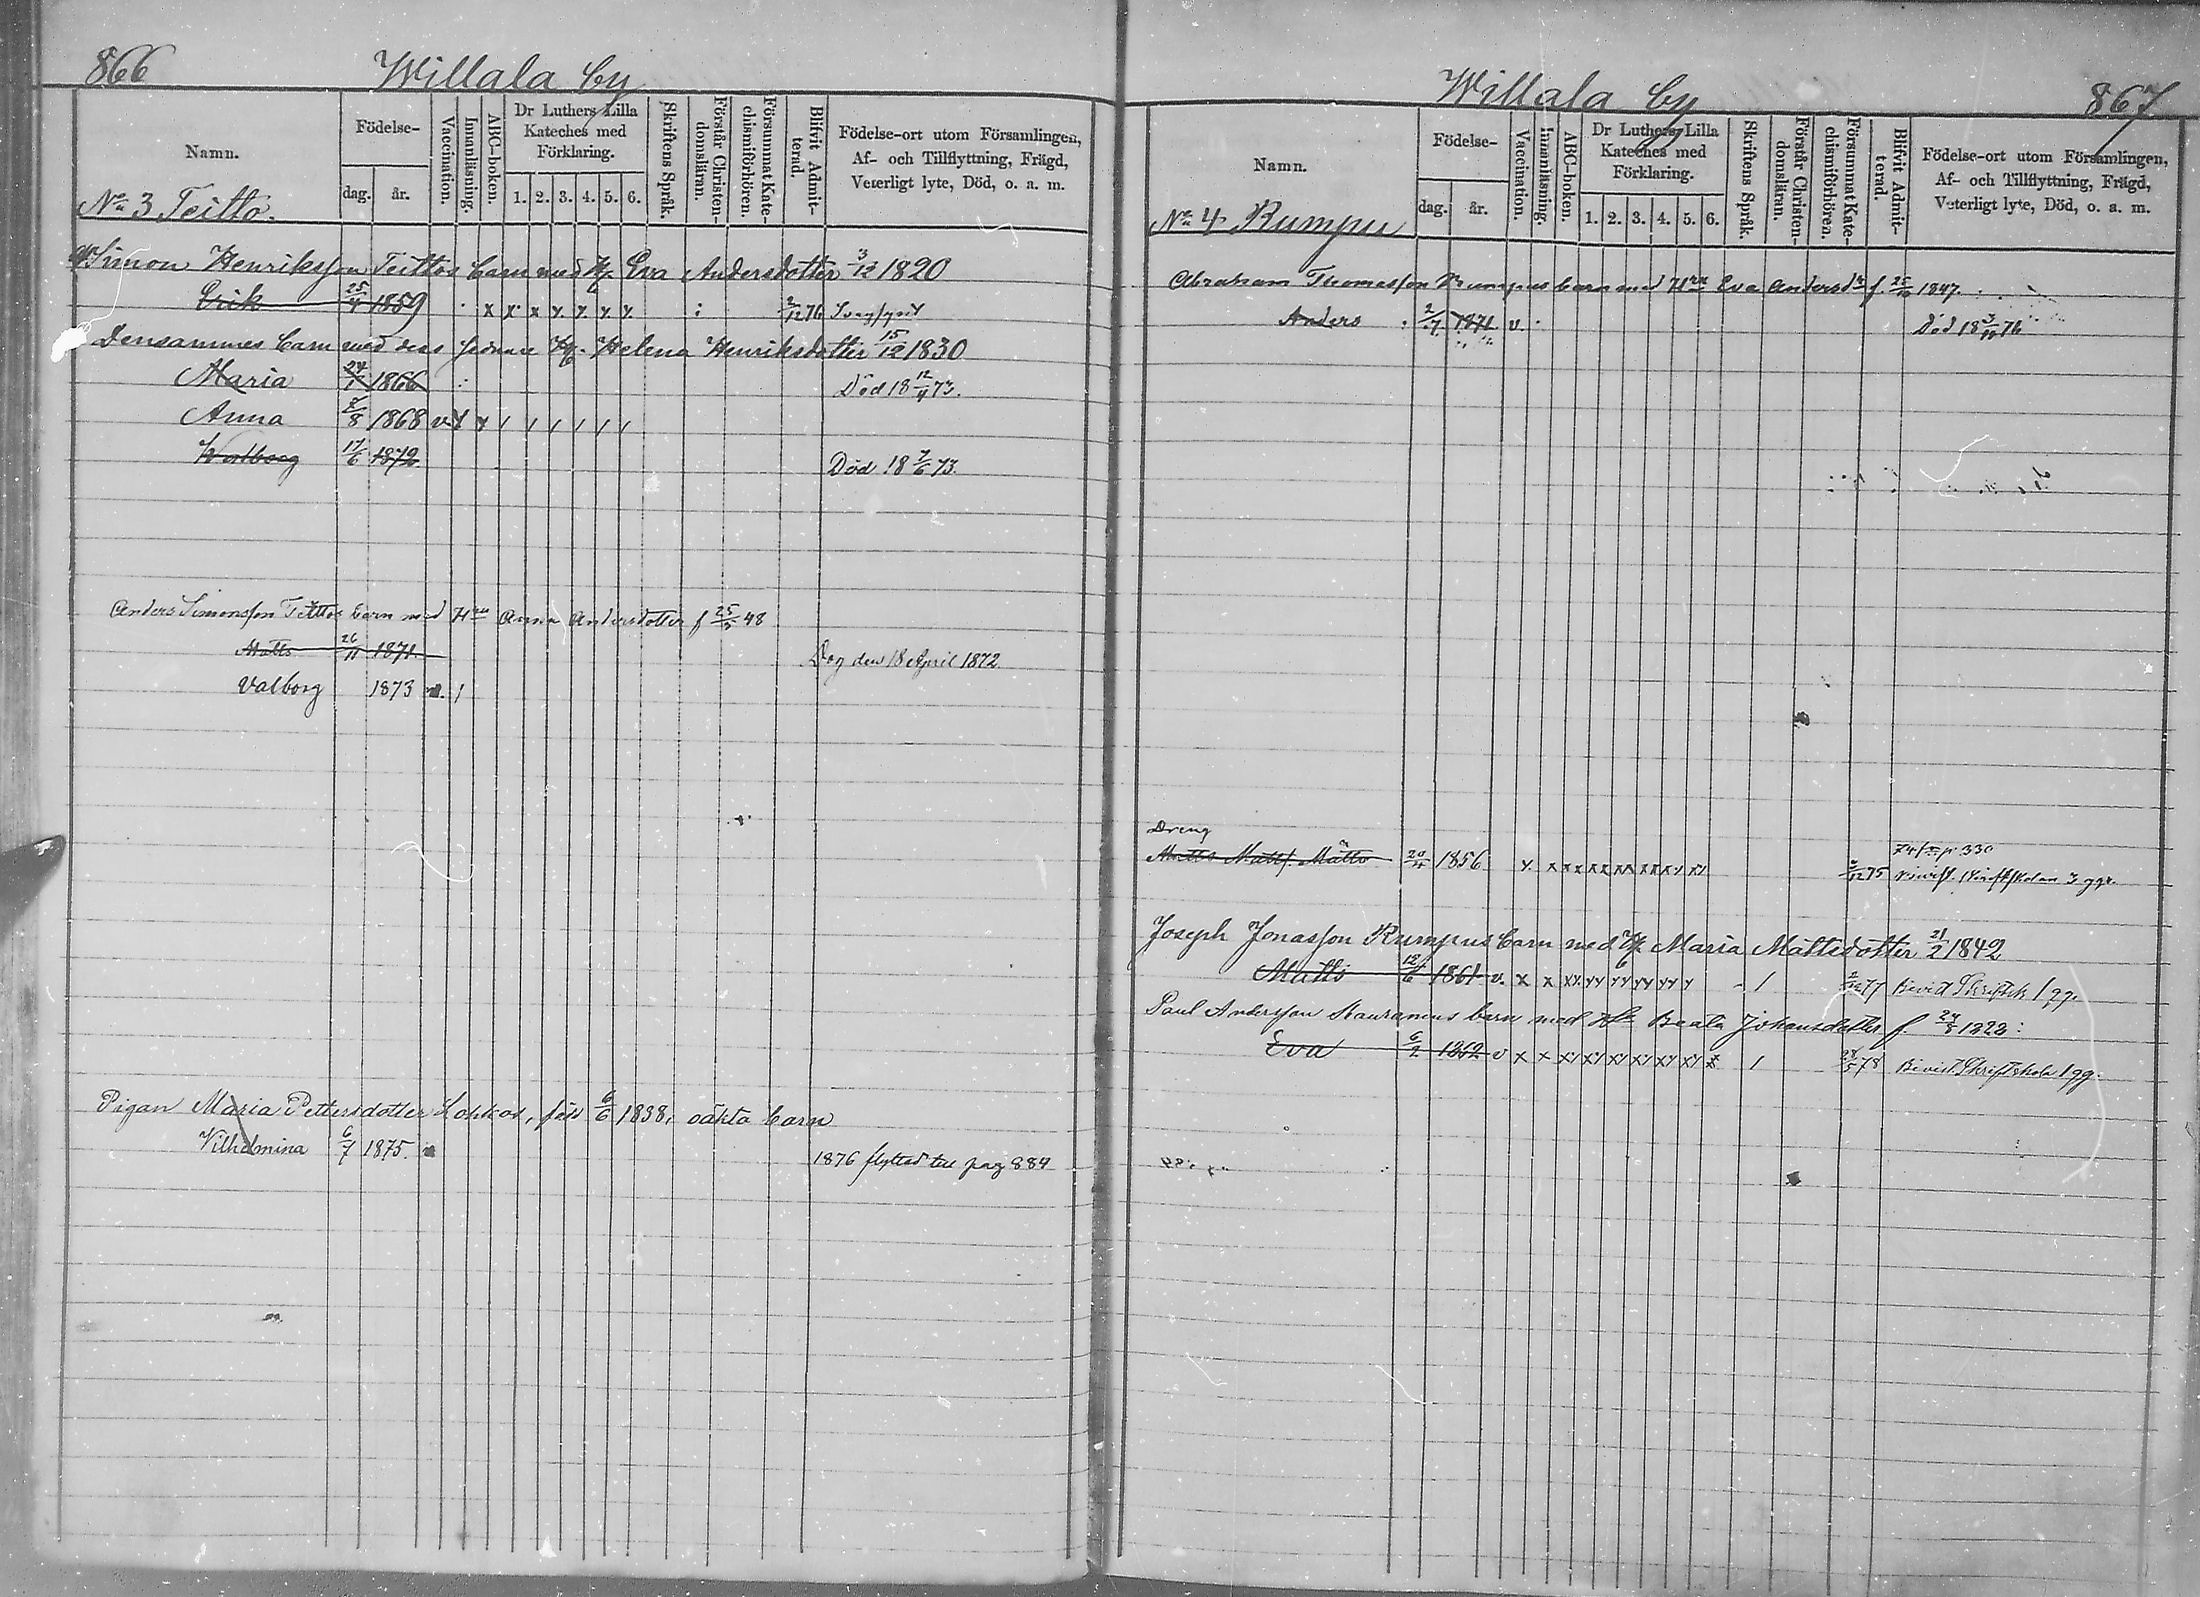 866
Willala by
Namn.
Födelse-
dag. år.
Vaccination.
Innanläsning.
ABC-boken.
Dr Luthers Lilla Kateches med Förklaring.
1. 2. 3. 4. 5. 6.
Skriftens Språk.
Förstår Christendomsläran.
Försummat Katechismiförhören.
Blifvit Admitterad.
Födelse-ort utom Församlingen,
Af- och Tillflyttning, Frägd,
Veterligt lyte, Död, o. a. m.
No 3 Teitto.
Simon Henriksson Teittos barn med H. Eva Andersdotter 3/12 1820
Erik 25/4 1859 x x x x x x x 2/12 76
Densammes barn med dess sednare H. Helena Henriksdotter 15/12 1830
Maria 24/1 1866 Död 18 12/4 73.
Anna 8/8 1868 v
Walborg 17/6 1872 Död 18 7/6 73.
Anders Simonsson Teittos barn med Hru Anna Andersdotter f 25/3 48
Matts 26/11 1871. Dog den 18 April 1872
Valborg 1873
Pigan Maria Pettersdotter född 6/6 1838, oäkta barn
Vilhelmina 6/7 1875. 1876 flyttad till pag 884
Willala by
867
Namn.
Födelse-
dag. år.
Vaccination.
Innanläsning.
ABC-boken.
Dr Luthers Lilla Kateches med Förklaring.
1. 2. 3. 4. 5. 6.
Skriftens Språk.
Förstår Christendomsläran.
Försummat Katechismiförhören.
Blifvit Admitterad.
Födelse-ort utom Församlingen,
Af- och Tillflyttning, Frägd,
Veterligt lyte, Död, o. a. m.
No 4 Rumpu
Abraham Thomasson Rumpus barn med Hru Eva Andersdr f. 25/10 1847.
Anders 2/7 1871 v. Död 18 3/10 76
Dreng
Matts Matts. Mätto 20/4 1856 p 330
2/12 75 3 ggr.
Joseph Jonasson Rumpus barn med H. Maria Mattsdotter 21/2 1842
Matts 12/6 1861 v. x x 2/12 77 Bevist Skriftsk 1 gg.
Paul Andersson barn med Beata Johansdotter f. 24/8 1822:
Eva 6/2 1862 v x x 28/5 78 Bevist Skriftskola 1 gg.